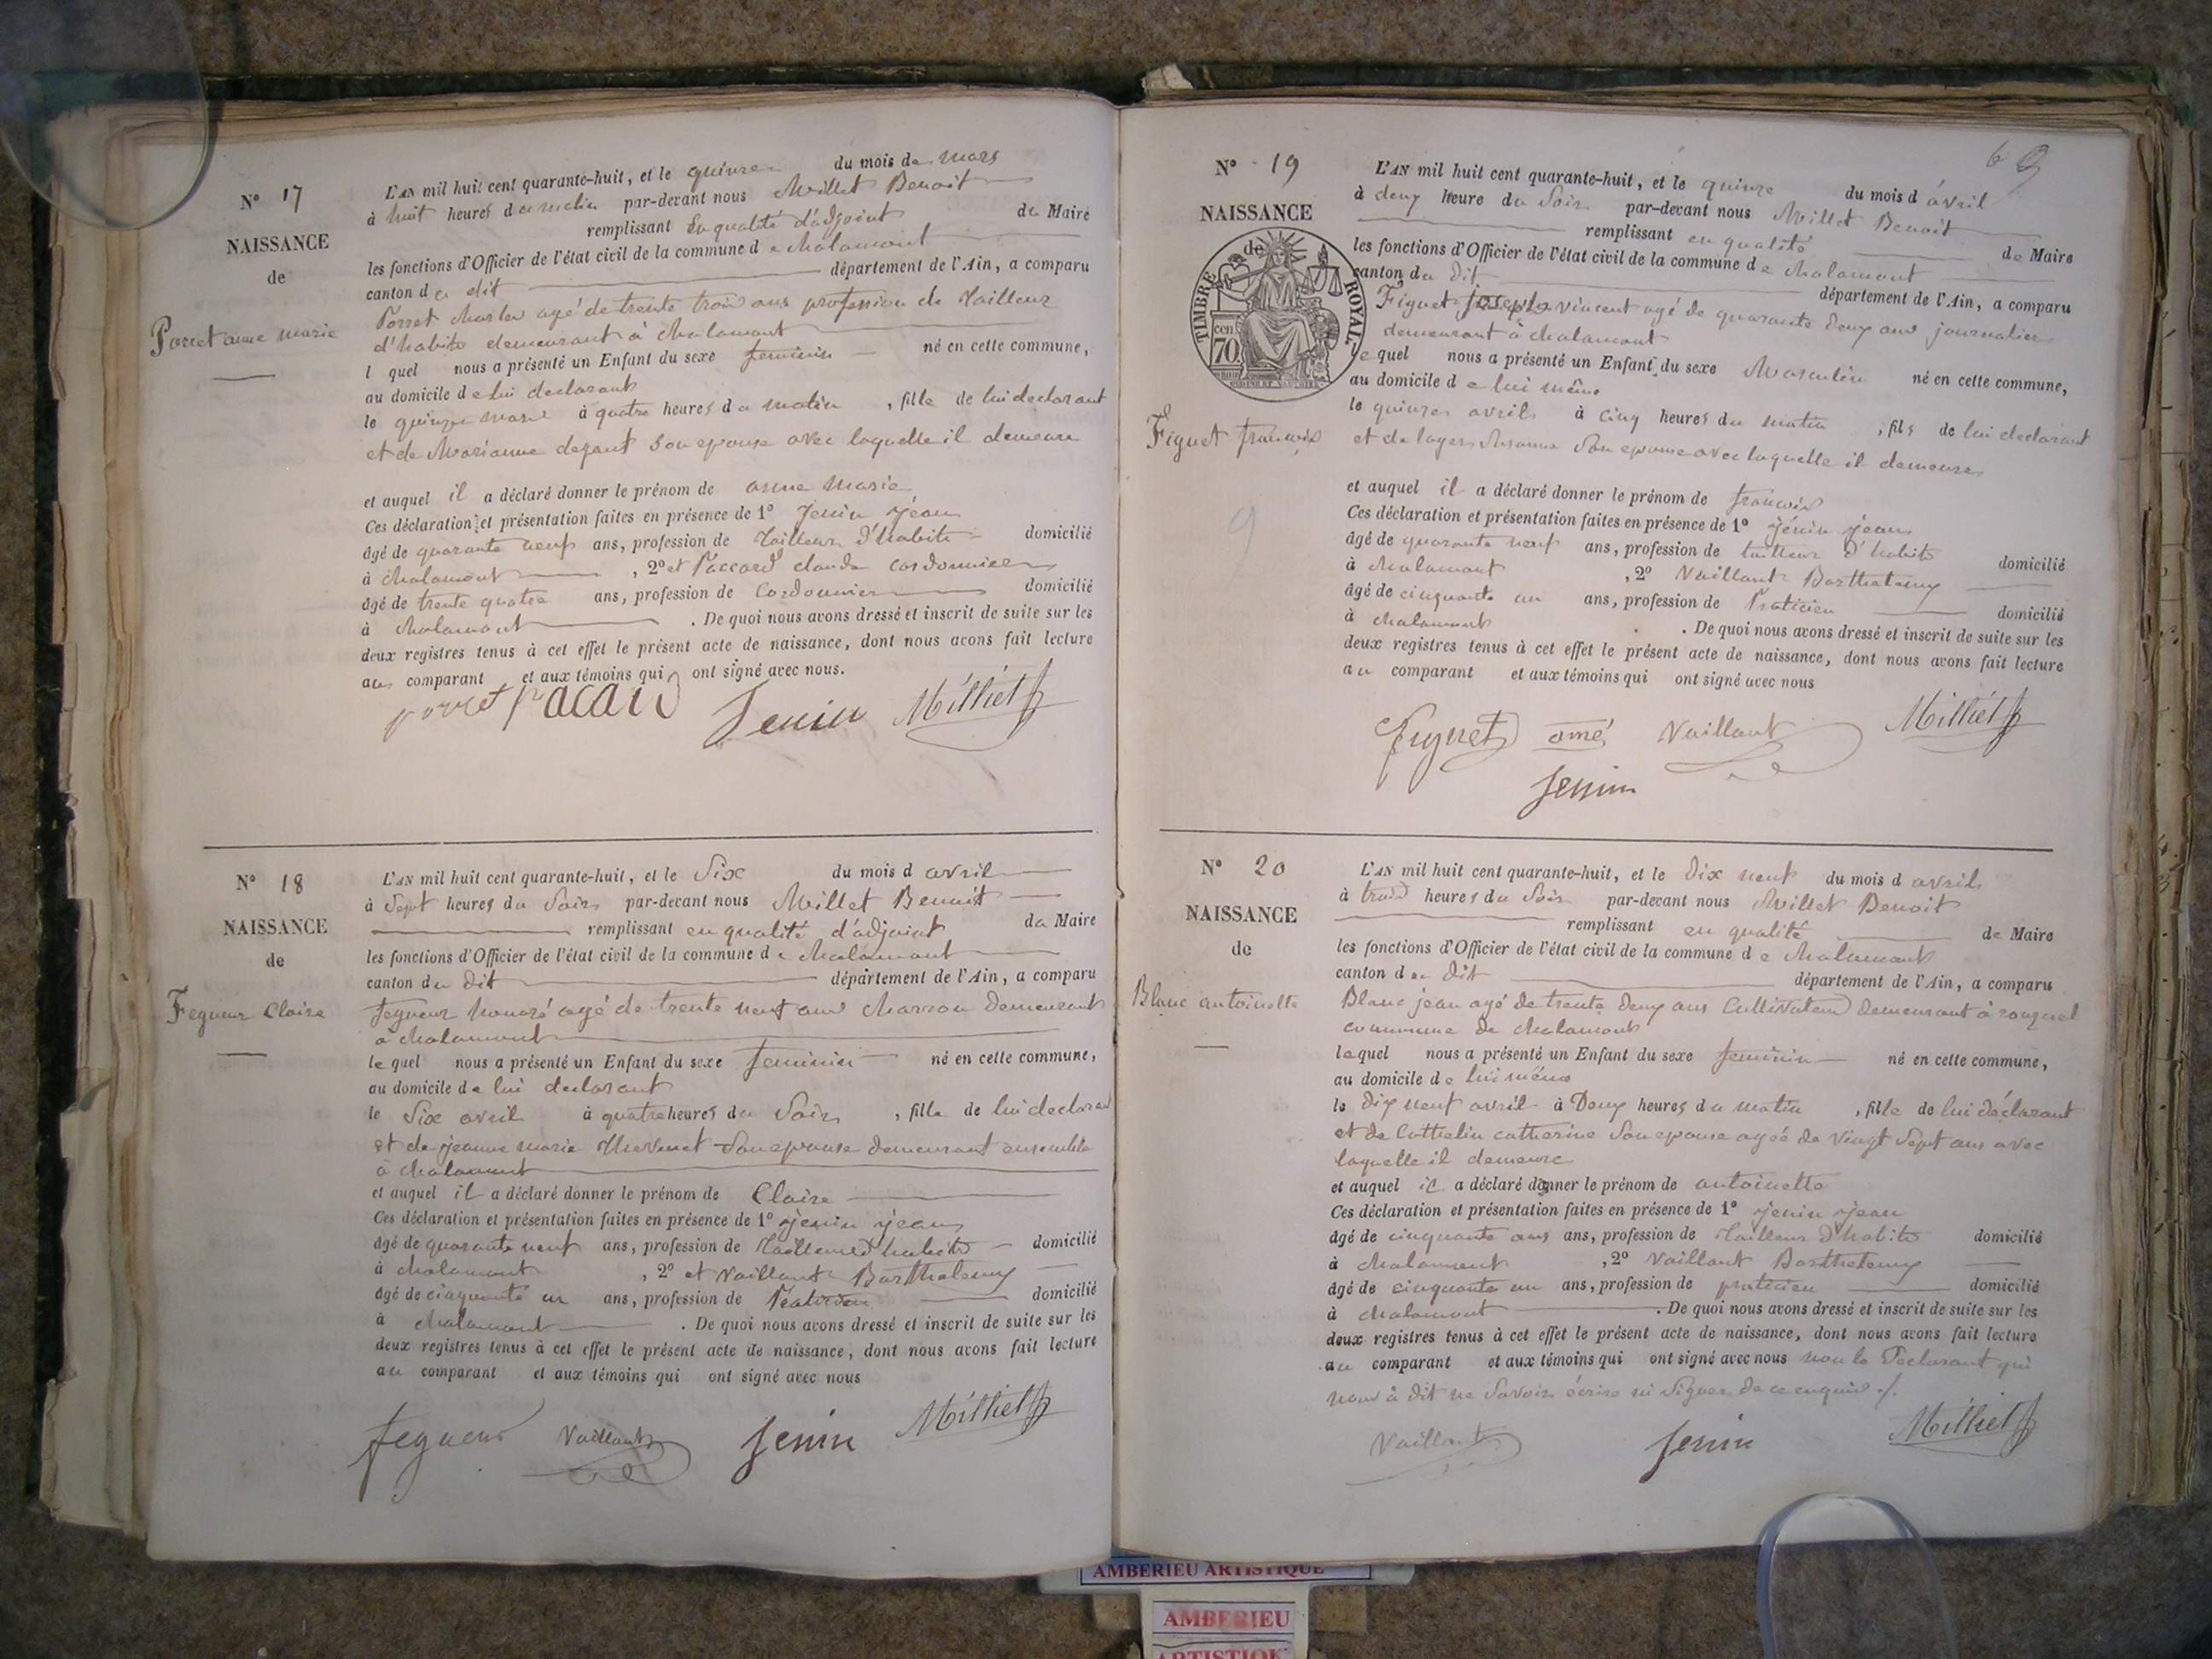 N° 17
NAISSANCE
de
Porret anne marie
L'AN mil huit cent quarante-huit, et le quinze du mois de mars
à huit heures du matin par-devant nous Milliet Benoit
remplissant en qualité d'adjoint du Maire
les fonctions d'Officier de l'état civil de la commune de chalamont
canton du dit département de l'Ain, a comparu
Porret charles agé de trente trois ans profession de tailleur
d'habits demeurant à chalamont
l quel nous a présenté un Enfant du sexe feminin né en cette commune,
au domicile de lui declarant
le quinze mars à quatre heures du matin, fille de lui declarant
et de Marianne son epouse avec laquelle il demeure
et auquel il a déclaré donner le prénom de anne marie
Ces déclaration et présentation faites en présence de 1° Jenin jean
âgé de quarante neuf ans, profession de tailleur d'habits domicilié
à chalamont, 2° et Paccard claude cordonnier
âgé de trente quatre ans, profession de Cordonnier domicilié
à chalamont. De quoi nous avons dressé et inscrit de suite sur les
deux registres tenus à cet effet le présent acte de naissance, dont nous avons fait lecture
au comparant et aux témoins qui ont signé avec nous.
porret pacard Jenin Milliet
N° 18
NAISSANCE
de
Fegueur Claire
L'AN mil huit cent quarante-huit, et le Six du mois d avril
à Sept heures du Soir par-devant nous Milliet Benoit
remplissant en qualité d'adjoint du Maire
les fonctions d'Officier de l'état civil de la commune de chalamont
canton du dit département de l'Ain, a comparu
fegueur honoré agé de trente neuf ans charron demeurant
à chalamont
lequel nous a présenté un Enfant du sexe feminin né en cette commune,
au domicile de lui declarant
le Six avril à quatre heures du Soir, fille de lui declarant
et de jeanne marie Son epouse demeurant ensemble
à chalamont
et auquel il a déclaré donner le prénom de Claire
Ces déclaration et présentation faites en présence de 1° jenin jean
âgé de quarante neuf ans, profession de tailleur d'habits domicilié
à chalamont, 2° et Vaillant Barthelemy
âgé de cinquante un ans, profession de Praticien domicilié
à chalamont. De quoi nous avons dressé et inscrit de suite sur les
deux registres tenus à cet effet le présent acte de naissance, dont nous avons fait lecture
au comparant et aux témoins qui ont signé avec nous
fegueur Vaillant Jenin Milliet
69
N° 19
NAISSANCE
de
TIMBRE ROYAL
70 cen
Figuet francois
9
L'AN mil huit cent quarante-huit, et le quinze du mois d avril
à deux heure du Soir par-devant nous Milliet Benoit
remplissant en qualité de Maire
les fonctions d'Officier de l'état civil de la commune de chalamont
canton du dit département de l'Ain, a comparu
Figuet joseph vincent agé de quarante deux ans journalier
demeurant à chalamont
lequel nous a présenté un Enfant du sexe Masculin né en cette commune,
au domicile de lui même
le quinze avril à cinq heures du matin, fils de lui declarant
et de Son epouse avec laquelle il demeure
et auquel il a déclaré donner le prénom de francois
Ces déclaration et présentation faites en présence de 1° jenin jean
âgé de quarante neuf ans, profession de tailleur d'habits domicilié
à chalamont, 2° Vaillant Barthelemy
âgé de cinquante un ans, profession de Praticien domicilié
à chalamont. De quoi nous avons dressé et inscrit de suite sur les
deux registres tenus à cet effet le présent acte de naissance, dont nous avons fait lecture
au comparant et aux témoins qui ont signé avec nous
Vaillant Milliet
Jenin
N° 20
NAISSANCE
de
Blanc antoinette
L'AN mil huit cent quarante-huit, et le Dix neuf du mois d avril
à trois heures du Soir par-devant nous Milliet Benoit
remplissant en qualité de Maire
les fonctions d'Officier de l'état civil de la commune de chalamont
canton du Dit département de l'Ain, a comparu
Blanc jean agé de trente deux ans Cultivateur demeurant à
commune de chalamont
lequel nous a présenté un Enfant du sexe feminin né en cette commune,
au domicile de lui même
le dix neuf avril à Deux heures du matin, fille de lui déclarant
et de Cathelin catherine Son epouse agée de vingt Sept ans avec
laquelle il demeure
et auquel il a déclaré donner le prénom de antoinette
Ces déclaration et présentation faites en présence de 1° jenin jean
âgé de cinquante ans ans, profession de tailleur d'habits domicilié
à chalamont, 2° Vaillant Barthelemy
âgé de cinquante un ans, profession de praticien domicilié
à chalamont. De quoi nous avons dressé et inscrit de suite sur les
deux registres tenus à cet effet le présent acte de naissance, dont nous avons fait lecture
au comparant et aux témoins qui ont signé avec nous non le Declarant qui
nous à dit ne Savoir écrire ni Signer de ce enquis ./.
Vaillant Jenin Milliet
AMBERIEU ARTISTIQUE
AMBERIEU
ARTISTIQUE